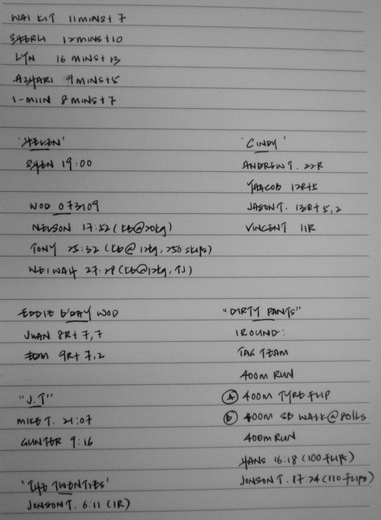 WAI KIT 11MINS+7
SHERLI 12MINS+10
LYN 16 MINS+13
AZHARI 9MINS+5
I-MIIN 8MINS+7
'HELEN'
SHEN 19:00
WOD 073109
NELSON 17:52 (KB@20kg)
TONY 25:32 (KB@12kg, 250 SKIPS)
NEIWAH 27:28 (KB@12kg, TJ)
'CINDY'
ANDREW T. 22R
YAACOB 12R+5
JASON T. 13R+5,2
VINCENT 11R
EDDIE B'DAY WOD
JUAN 8R+7,7
EDM 9R+7,2
"J.T"
MIKE T. 21:07
GUNTER 9:16
'THE TWENTIES'
JONSON T. 6:11 (1R)
"DIRTY PANTS"
1 ROUND:
TAG TEAM
400M RUN
A 400M TYRE FLIP
B 400M SB WALK@POLLS
400M RUN
HANS 16:18 (100 FLIPS)
JONSON T. 17:24 (110 FLIPS)